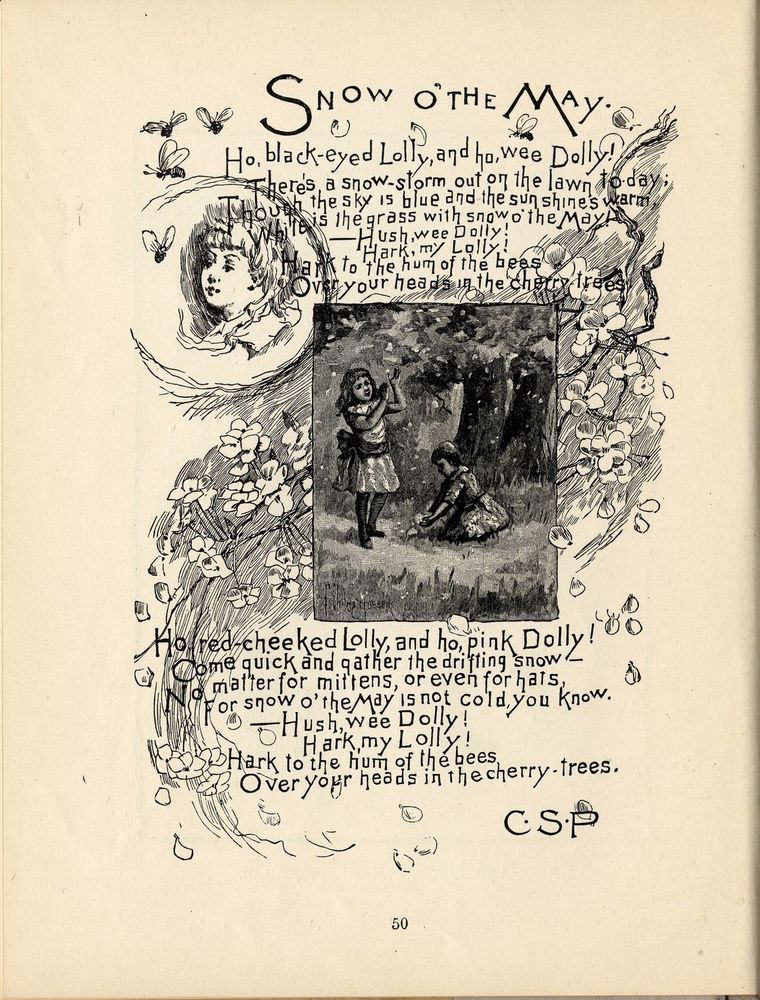 SNOW O' THE MAY.
Ho, black-eyed Lolly, and ho, wee Dolly!
There's, a snow-storm out on the lawn to-day;
Though the sky is blue and the sunshine's warm
White is the grass with snow o' the May!
—Hush, wee Dolly!
Hark, my Lolly!
Hark to the hum of the bees
Over your heads in the cherry-trees.
Ho, red-cheeked Lolly, and ho, pink Dolly!
Come quick and gather the drifting snow—
No matter for mittens, or even for hats,
For snow o' the May is not cold, you know.
—Hush, wee Dolly!
Hark, my Lolly!
Hark to the hum of the bees
Over your heads in the cherry-trees.
C.S.P
50